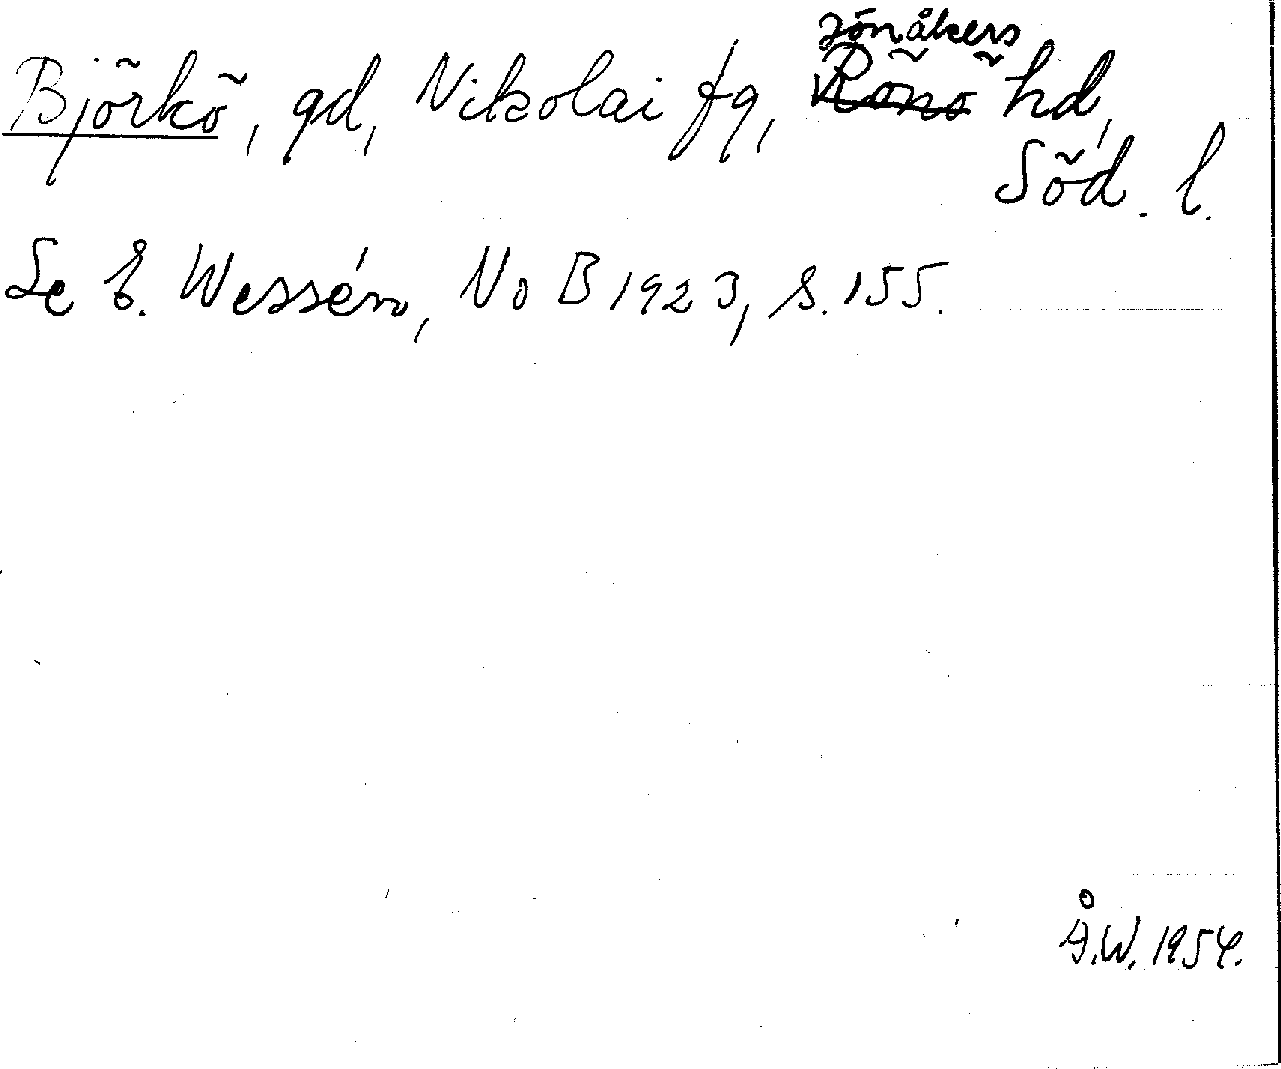 Jönåkers
Björkö, gd, Nikolai fg, Rönö hd,
Söd. l.
Se E. Wessén, NoB 1923, s. 155.
Å.W. 1954.